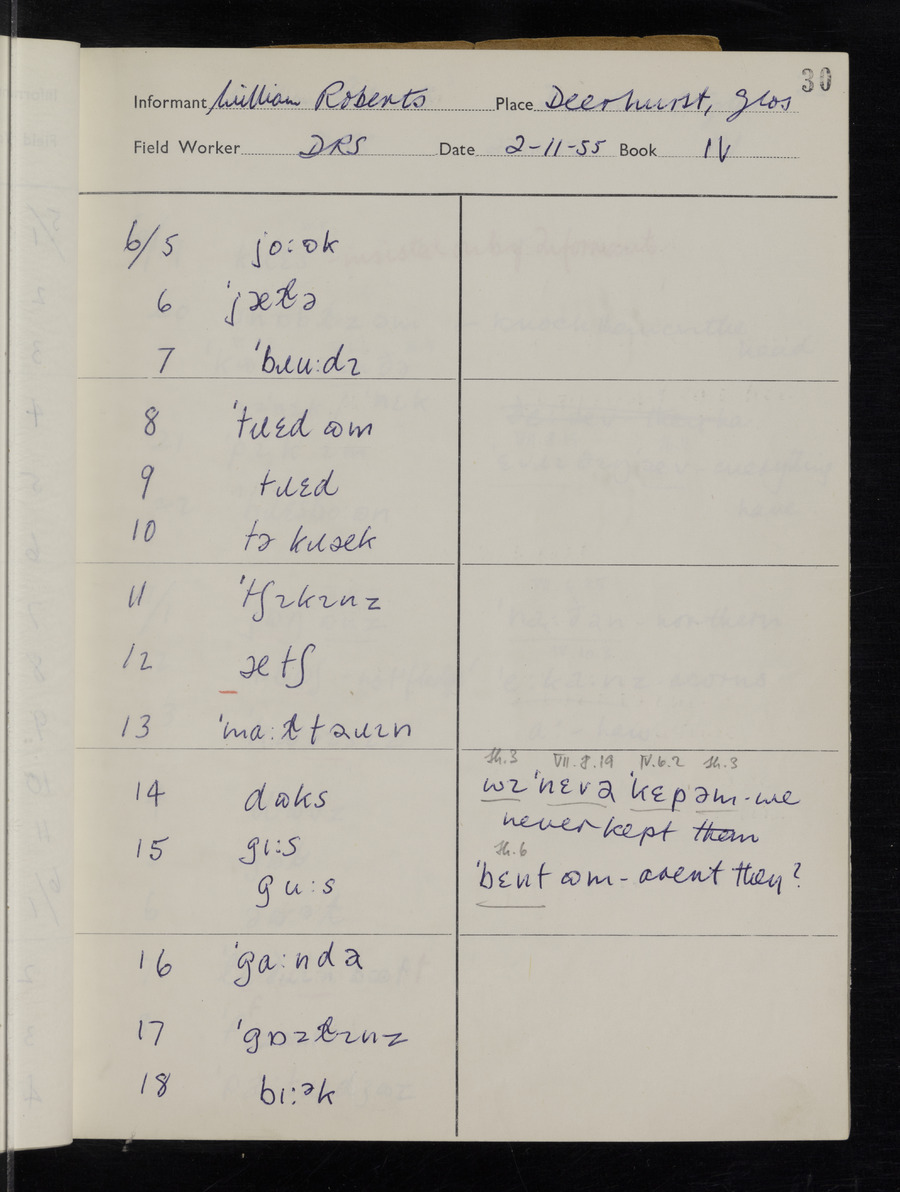 30
Informant William Roberts Place Deerhurst, Glos
Field Worker DRS Date 2-11-55 Book IV
6/5 jo:ək
6 ˈjəɫə
7 ˈbɹu:dɪ
8 ˈtɹɛd ɷm
9 tɹɛd
10 tə kɹəek
11 ˈtʃɪkɪnz
12 əetʃ
13 ˈma:ɫtəɹɪn
14 dɷks
15 gɪ:s
gu:s
16 ˈga:ndə
17 ˈgɒzɫɪnz
18 bɪ:ək
sh.3 VII.8.19 IV.6.2 sh.3
wɪ ˈnɛvə ˈkɛp əm - we
never kept them
sh.6
ˈbɛnt ɷm - arent they?